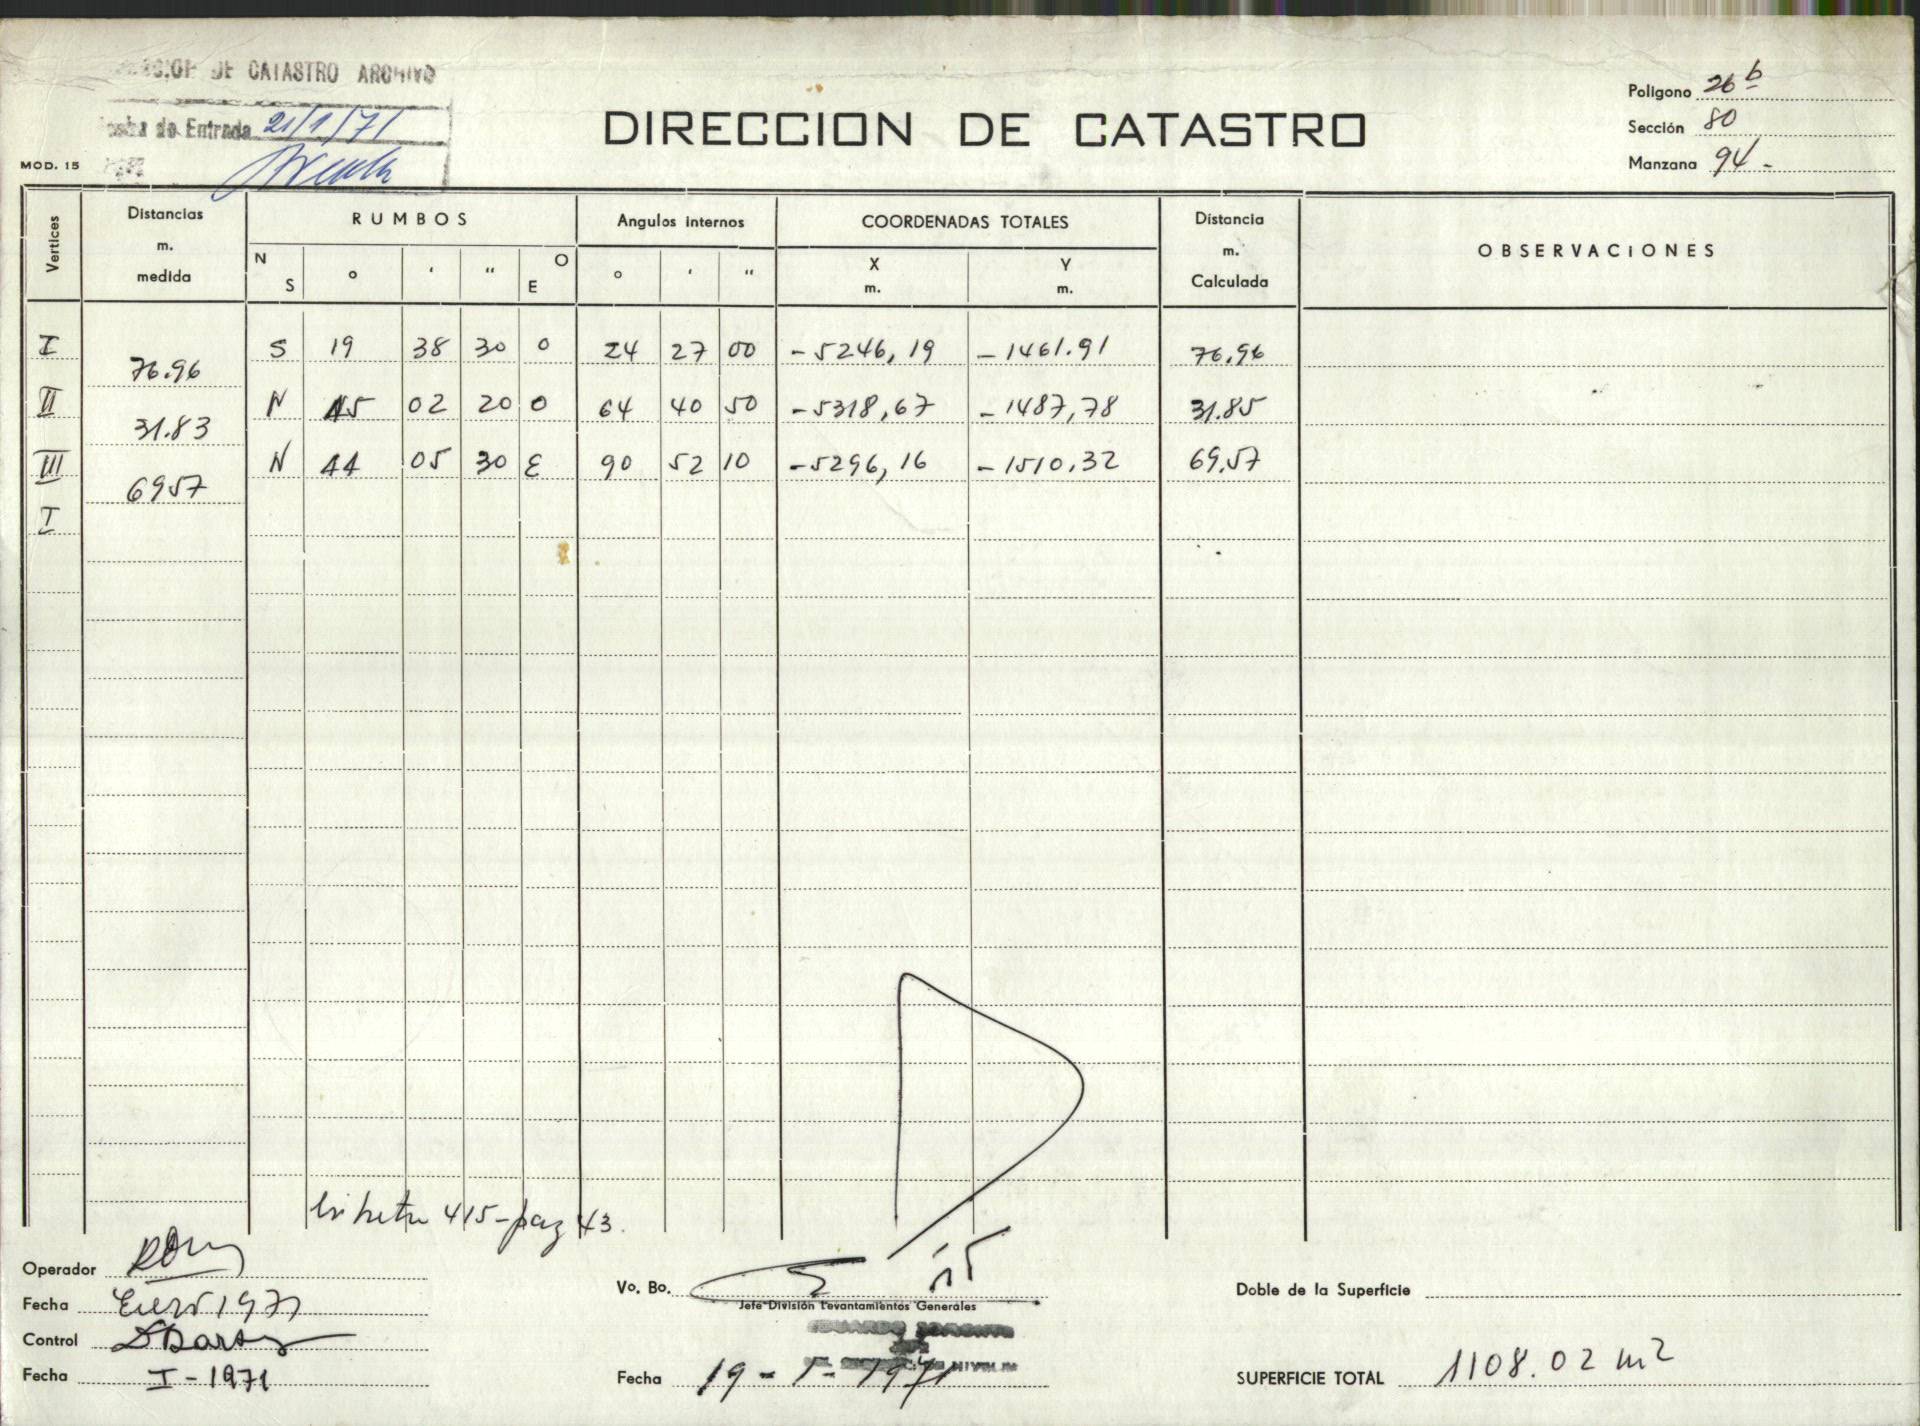 DE CATASTRO ARCHIVO
de Entrada 21/1/71
MOD. 15
DIRECCION DE CATASTRO
Poligono 26 b
Sección 80
Manzana 94 -
Vertices
Distancias m. medida
RUMBOS
N S ° ' " O E
Angulos internos
° ' "
COORDENADAS TOTALES
X m. Y m.
Distancia m. Calculada
OBSERVACIONES
I S 19 38 30 O 24 27 00 -5246,19 -1461.91 76,96
76.96
II N 45 02 20 O 64 40 50 -5318,67 -1487,78 31.85
31.83
III N 44 05 30 E 90 52 10 -5296,16 -1510,32 69,57
6957
I
libreta 415-pag 43.
Operador
Fecha Enero 1971
Control
Fecha I-1971
Vo. Bo.
Jefe División Levantamientos Generales
Fecha 19-1-1971
Doble de la Superficie
SUPERFICIE TOTAL 1108.02 m2